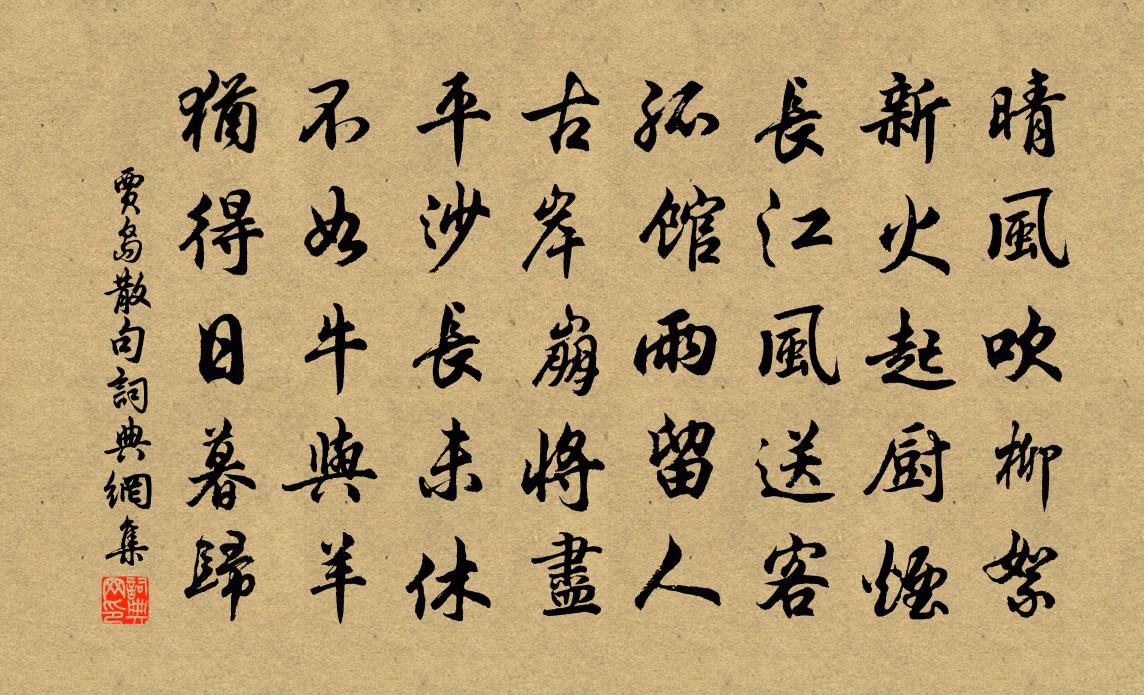 晴風吹柳絮
新火起厨煙
長江風送客
孤館雨留人
古岸崩將盡
平沙長未休
不如牛與羊
猶得日暮歸
賈島散句詞典網集
詞典网印